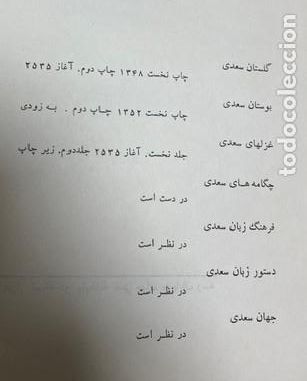 گلستان سعدی
چاپ نخست ۱۳۴۸ چاپ دوم. آغاز ۲۵۳۵
بوستان سعدی
چاپ نخست ۱۳۵۲ چاپ دوم . به زودی
غزلهای سعدی
جلد نخست. آغاز ۲۵۳۵ جلددوم. زیر چاپ
چگامه های سعدی
در دست است
فرهنگ زبان سعدی
در نظر است
دستور زبان سعدی
در نظر است
جهان سعدی
در نظر است
todocoleccion